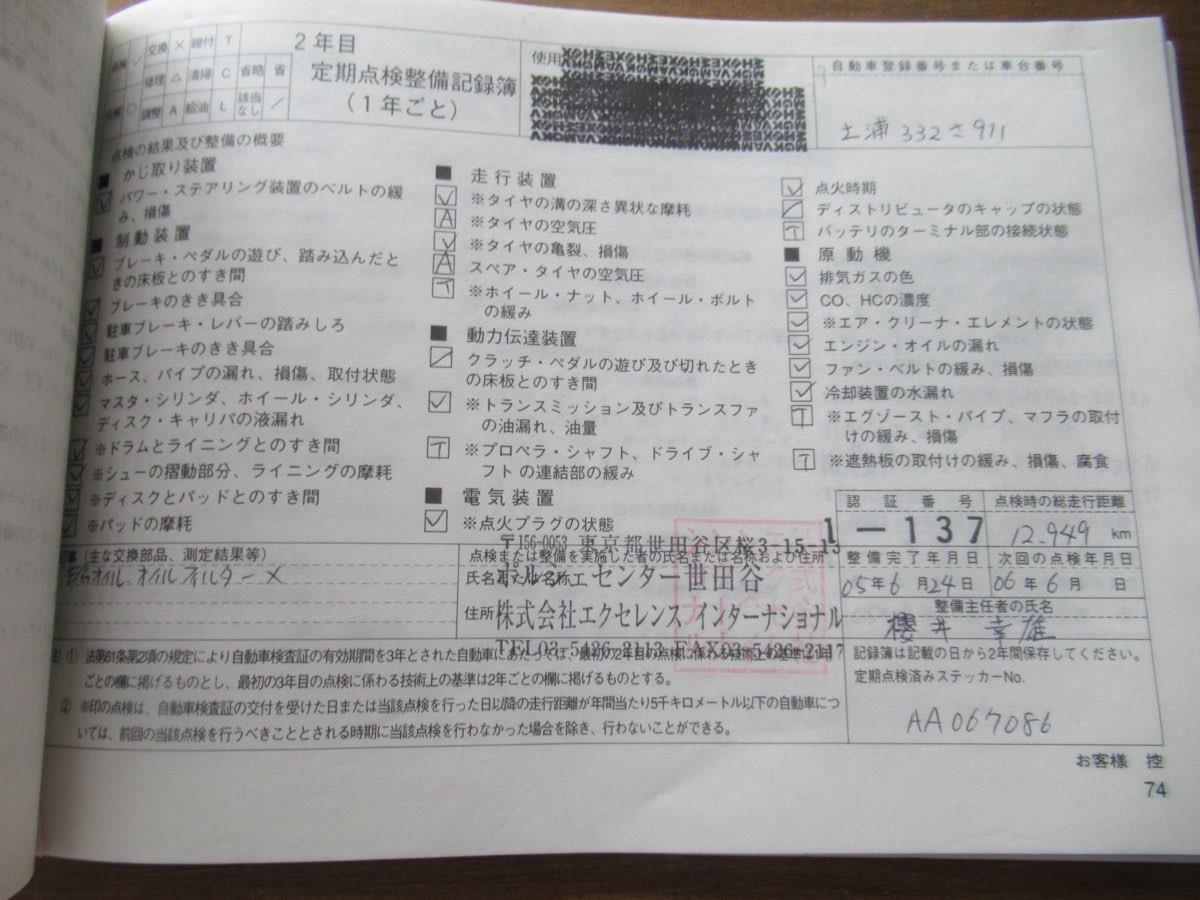 点検 ✓ 交換 × 締付 T
修理 △ 清掃 C 省略 省
分解 ○ 調整 A 給油 L 該当なし ／
2年目
定期点検整備記録簿
(1年ごと)
使用
自動車登録番号または車台番号
土浦 332 さ 911
点検の結果及び整備の概要
■ かじ取り装置
パワー・ステアリング装置のベルトの緩
み、損傷
■ 制動装置
ブレーキ・ペダルの遊び、踏み込んだと
きの床板とのすき間
ブレーキのきき具合
駐車ブレーキ・レバーの踏みしろ
駐車ブレーキのきき具合
ホース、パイプの漏れ、損傷、取付状態
マスタ・シリンダ、ホイール・シリンダ、
ディスク・キャリパの液漏れ
※ドラムとライニングとのすき間
※シューの摺動部分、ライニングの摩耗
※ディスクとパッドとのすき間
※パッドの摩耗
■ 走行装置
※タイヤの溝の深さ異状な摩耗
A ※タイヤの空気圧
※タイヤの亀裂、損傷
A スペア・タイヤの空気圧
T ※ホイール・ナット、ホイール・ボルト
の緩み
■ 動力伝達装置
クラッチ・ペダルの遊び及び切れたとき
の床板とのすき間
※トランスミッション及びトランスファ
の油漏れ、油量
T ※プロペラ・シャフト、ドライブ・シャ
フトの連結部の緩み
■ 電気装置
※点火プラグの状態
点火時期
ディストリビュータのキャップの状態
T バッテリのターミナル部の接続状態
■ 原動機
排気ガスの色
CO、HCの濃度
※エア・クリーナ・エレメントの状態
エンジン・オイルの漏れ
ファン・ベルトの緩み、損傷
冷却装置の水漏れ
T ※エグゾースト・パイプ、マフラの取付
けの緩み、損傷
T ※遮熱板の取付けの緩み、損傷、腐食
認証番号 点検時の総走行距離
1－137 12,949 km
記事 (主な交換部品、測定結果等)
E/Gオイル、オイルフィルター ×
点検または整備を実施した者の氏名または名称および住所
氏名または名称
住所
〒156-0053 東京都世田谷区桜3-15-13
ポルシェセンター世田谷
株式会社エクセレンス インターナショナル
TEL03-5426-2113 FAX03-5426-2117
整備完了年月日 次回の点検年月日
05年6月24日 06年6月 日
整備主任者の氏名
櫻井 幸雄
注) ① 法第61条第2項の規定により自動車検査証の有効期間を3年とされた自動車にあたっては、最初の2年目の点検に係わる技術上の基準は1年
ごとの欄に掲げるものとし、最初の3年目の点検に係わる技術上の基準は2年ごとの欄に掲げるものとする。
② ※印の点検は、自動車検査証の交付を受けた日または当該点検を行った日以降の走行距離が年間当たり5千キロメートル以下の自動車につ
いては、前回の当該点検を行うべきこととされる時期に当該点検を行わなかった場合を除き、行わないことができる。
記録簿は記載の日から2年間保存してください。
定期点検済みステッカーNo.
AA067086
お客様 控
74